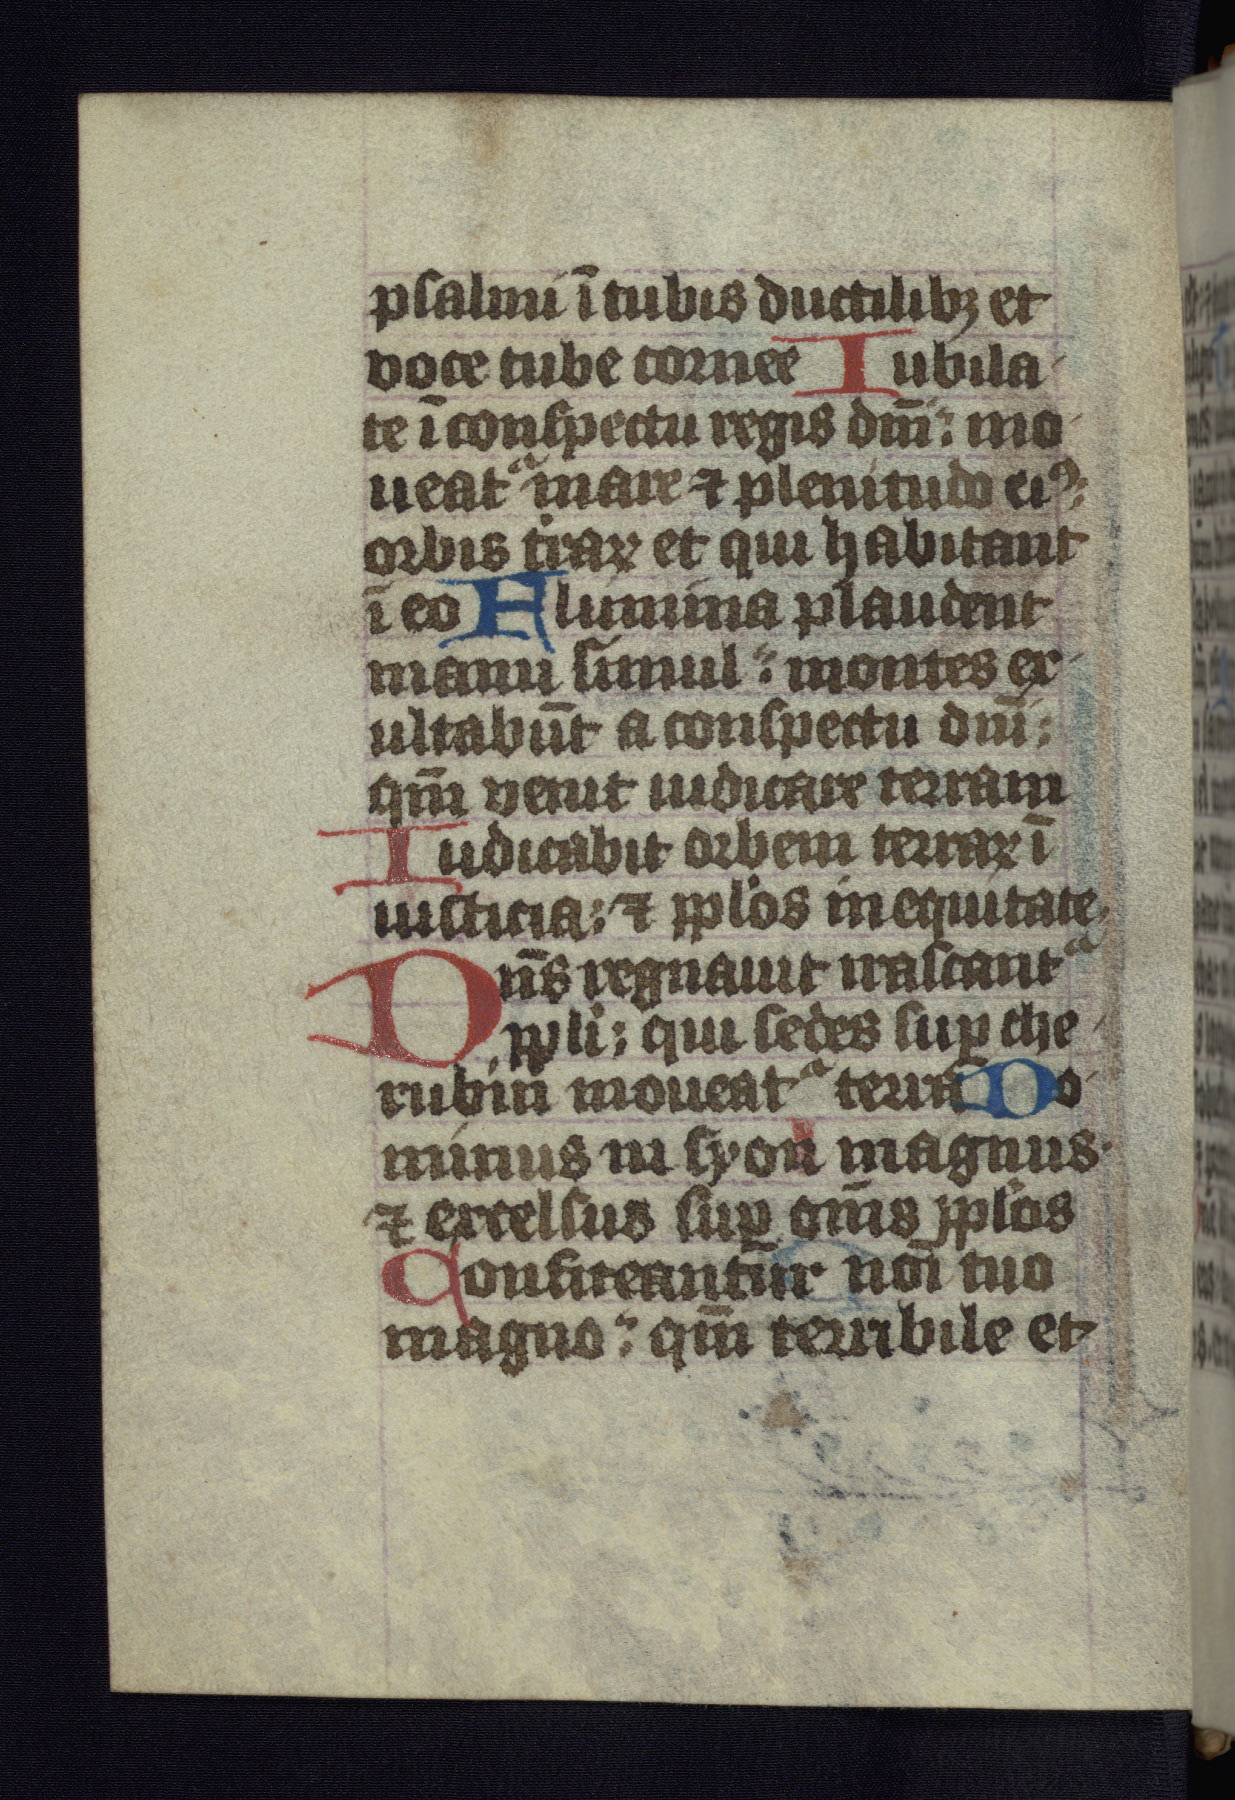 psalmi ī tubis ductilibꝫ et
voce tube cornee Iubila
te ī conspectu regis dm̄i: mo
ueatᵃ mare ⁊ plenitudo eiꝰ:
orbis t̄raꝝ et qui habitant
ī eo Flumina plaudent
manu simul: montes ex
ultabūt a conspectu dn̄i:
qm̄ venit iudicare terram
Iudicabit orbem terraꝝ ī
iusticia: ⁊ pplos in equitate.
Dn̄s regnauit irascantᵃ
ppli: qui sedes suꝑ che
rubin moueatᵃ terra Do
minus in syon magnus
⁊ excelsus suꝑ om̄s pplos
Confiteantur noī tuo
magno: qm̄ terribile et